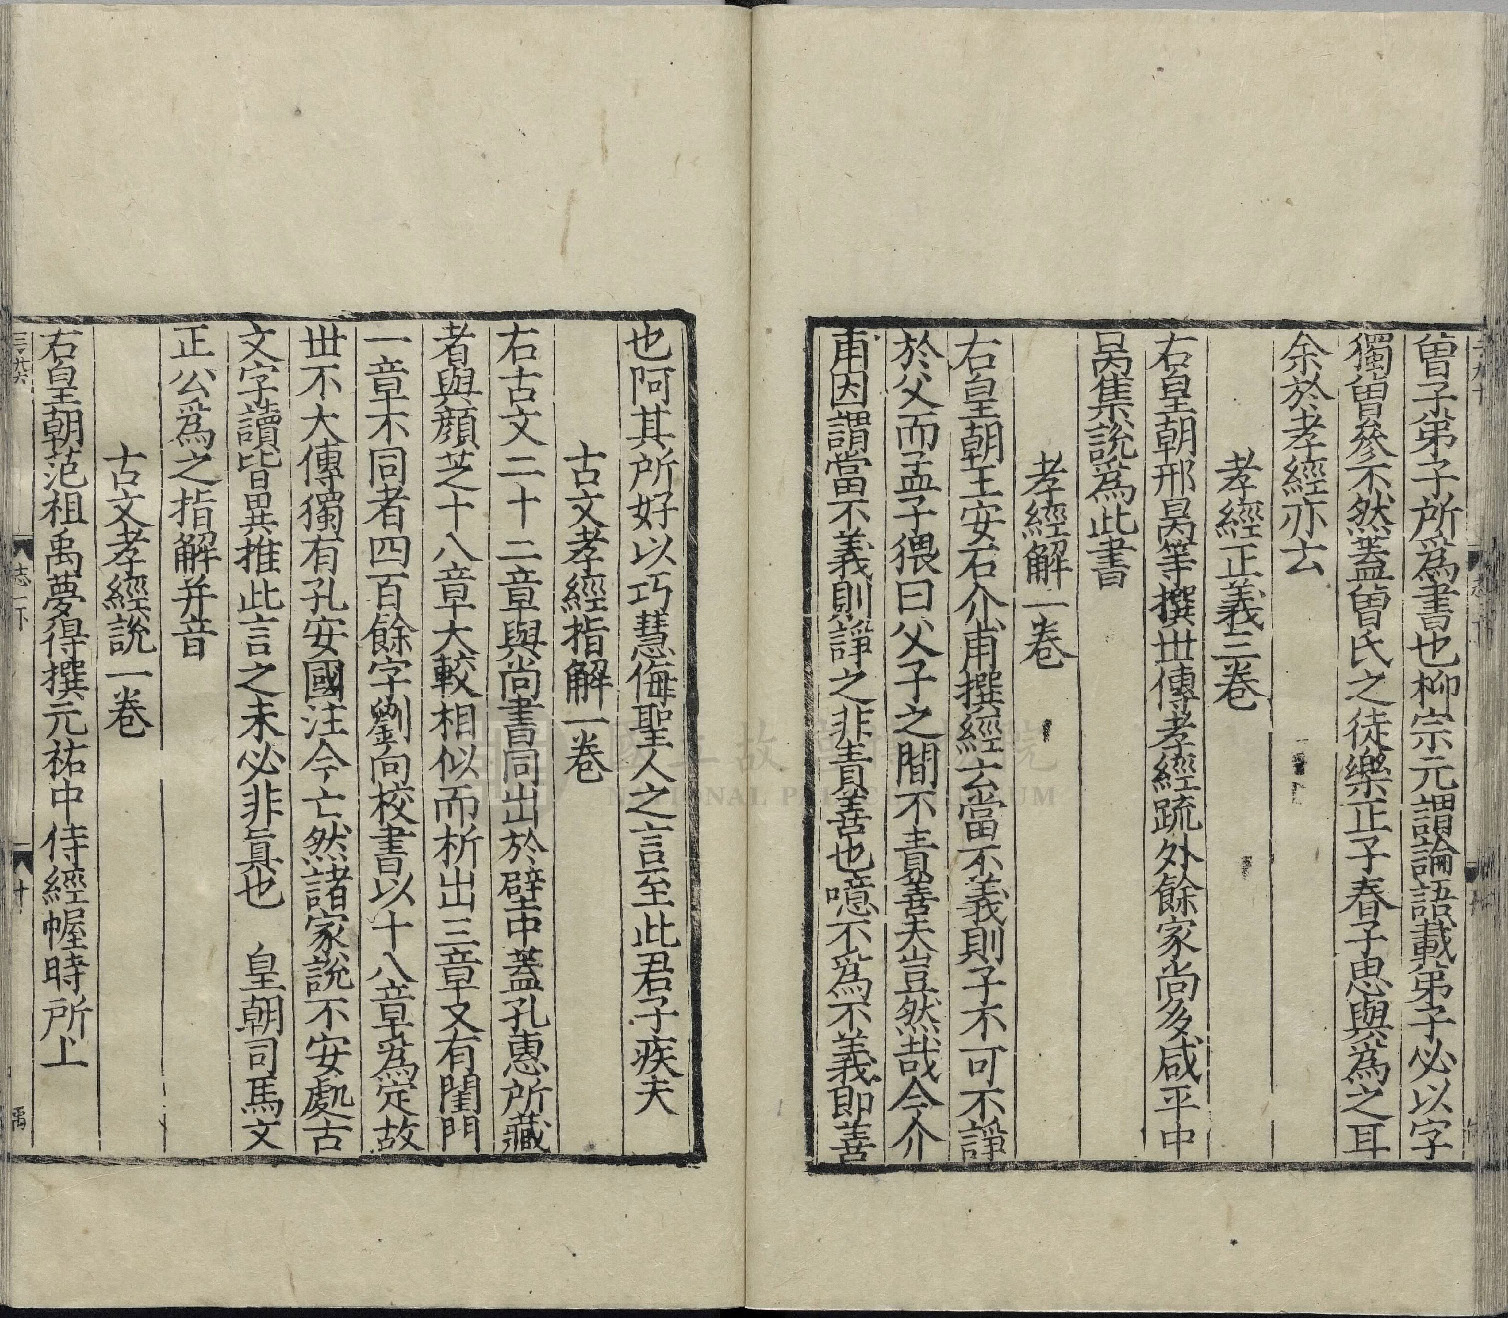 曾子弟子所爲書也柳宗元謂論語載弟子必以字
獨曾參不然蓋曾氏之徒樂正子春子思與爲之耳
余於孝經亦云
孝經正義三卷
右皇朝邢昺等撰世傳孝經疏外餘家尚多咸平中
昺集說爲此書
孝經解一卷
右皇朝王安石介甫撰經云當不義則子不可不諍
於父而孟子猥曰父子之間不責善夫豈然哉今介
甫因謂當不義則諍之非責善也噫不爲不義即善
也阿其所好以巧慧侮聖人之言至此君子疾夫
古文孝經指解一卷
右古文二十二章與尚書同出於壁中蓋孔惠所藏
者與顏芝十八章大較相似而析出三章又有閨門
一章不同者四百餘字劉向校書以十八章爲定故
世不大傳獨有孔安國注今亡然諸家說不安處古
文字讀皆異推此言之未必非眞也　皇朝司馬文
正公爲之指解并音
古文孝經說一卷
右皇朝范祖禹夢得撰元祐中侍經幄時所上
志一下
十
禹
國立故宮博物院
NATIONAL PALACE MUSEUM